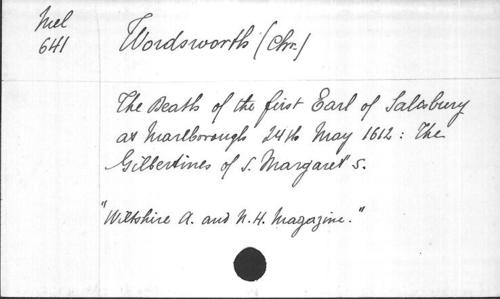 Mel
641
Wordsworth (Chr.)
The Death of the first Earl of Salisbury
at Marlborough 24th May 1612: The
Gilbertines of S. Margaret's.
"Wiltshire A. and N. H. Magazine."